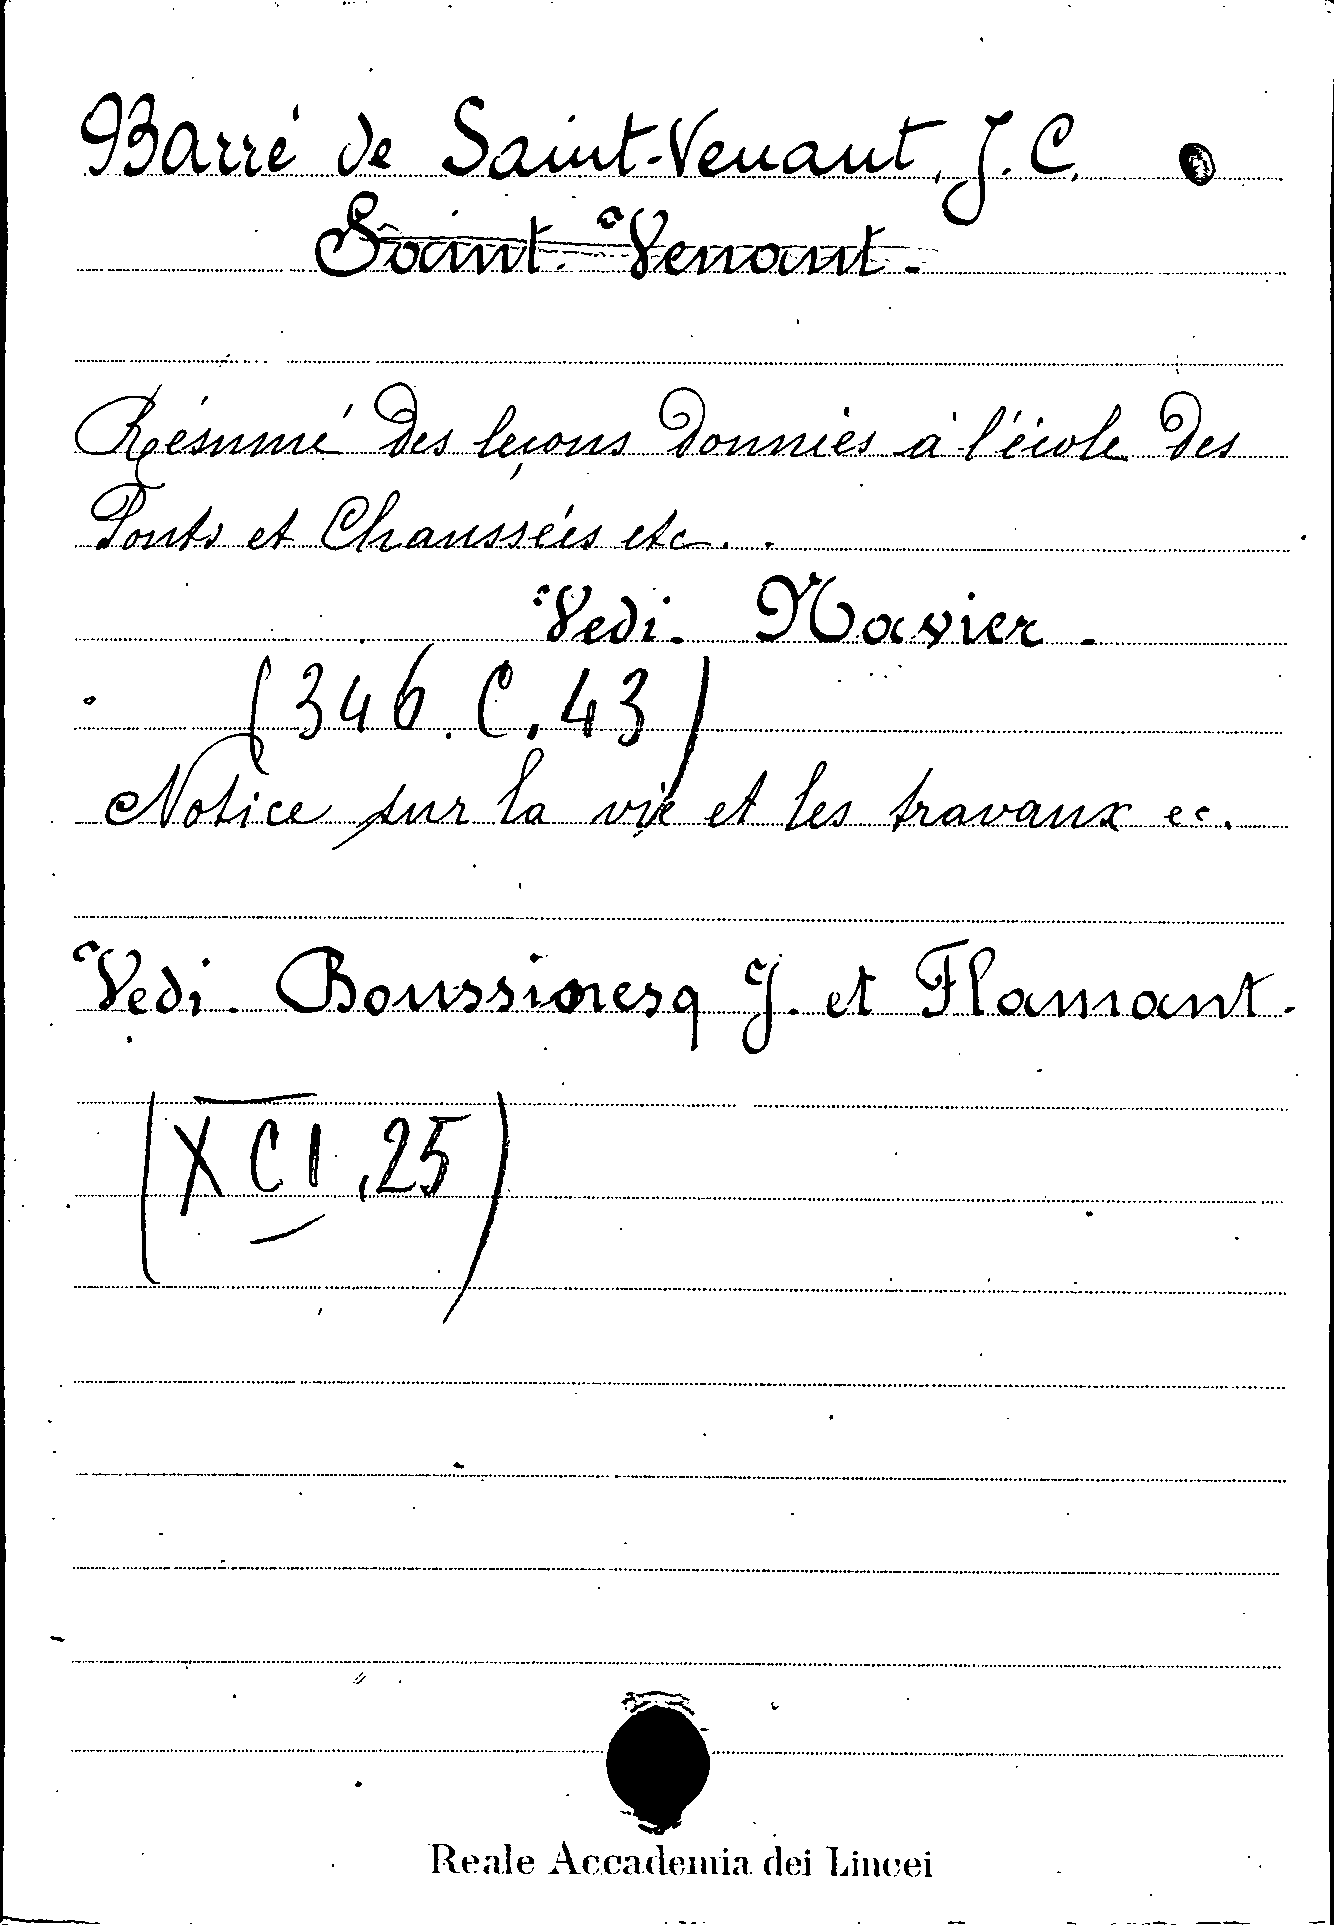 Barré de Saint-Venant, J. C.
Saint-Venant.
Résumé des leçons données à l'école des
Ponts et Chaussées etc...
Vedi. Navier.
(346. C. 43)
Notice sur la vie et les travaux ec.
Vedi. Boussinesq J. et Flamant.
(XCI, 25)
Reale Accademia dei Lincei